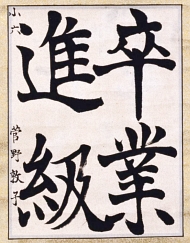 卒業
進級
小六 菅野敦子